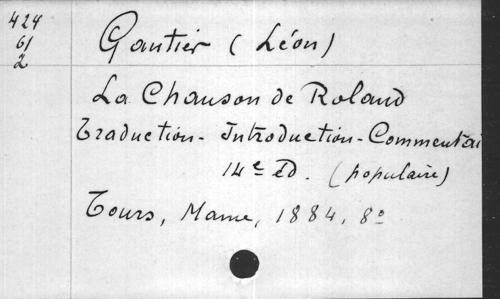 424
61
2
Gautier (Léon)
La Chanson de Roland
Traduction - Introduction - Commentai
14e Ed. (populaire)
Tours, Mame, 1884, 8º